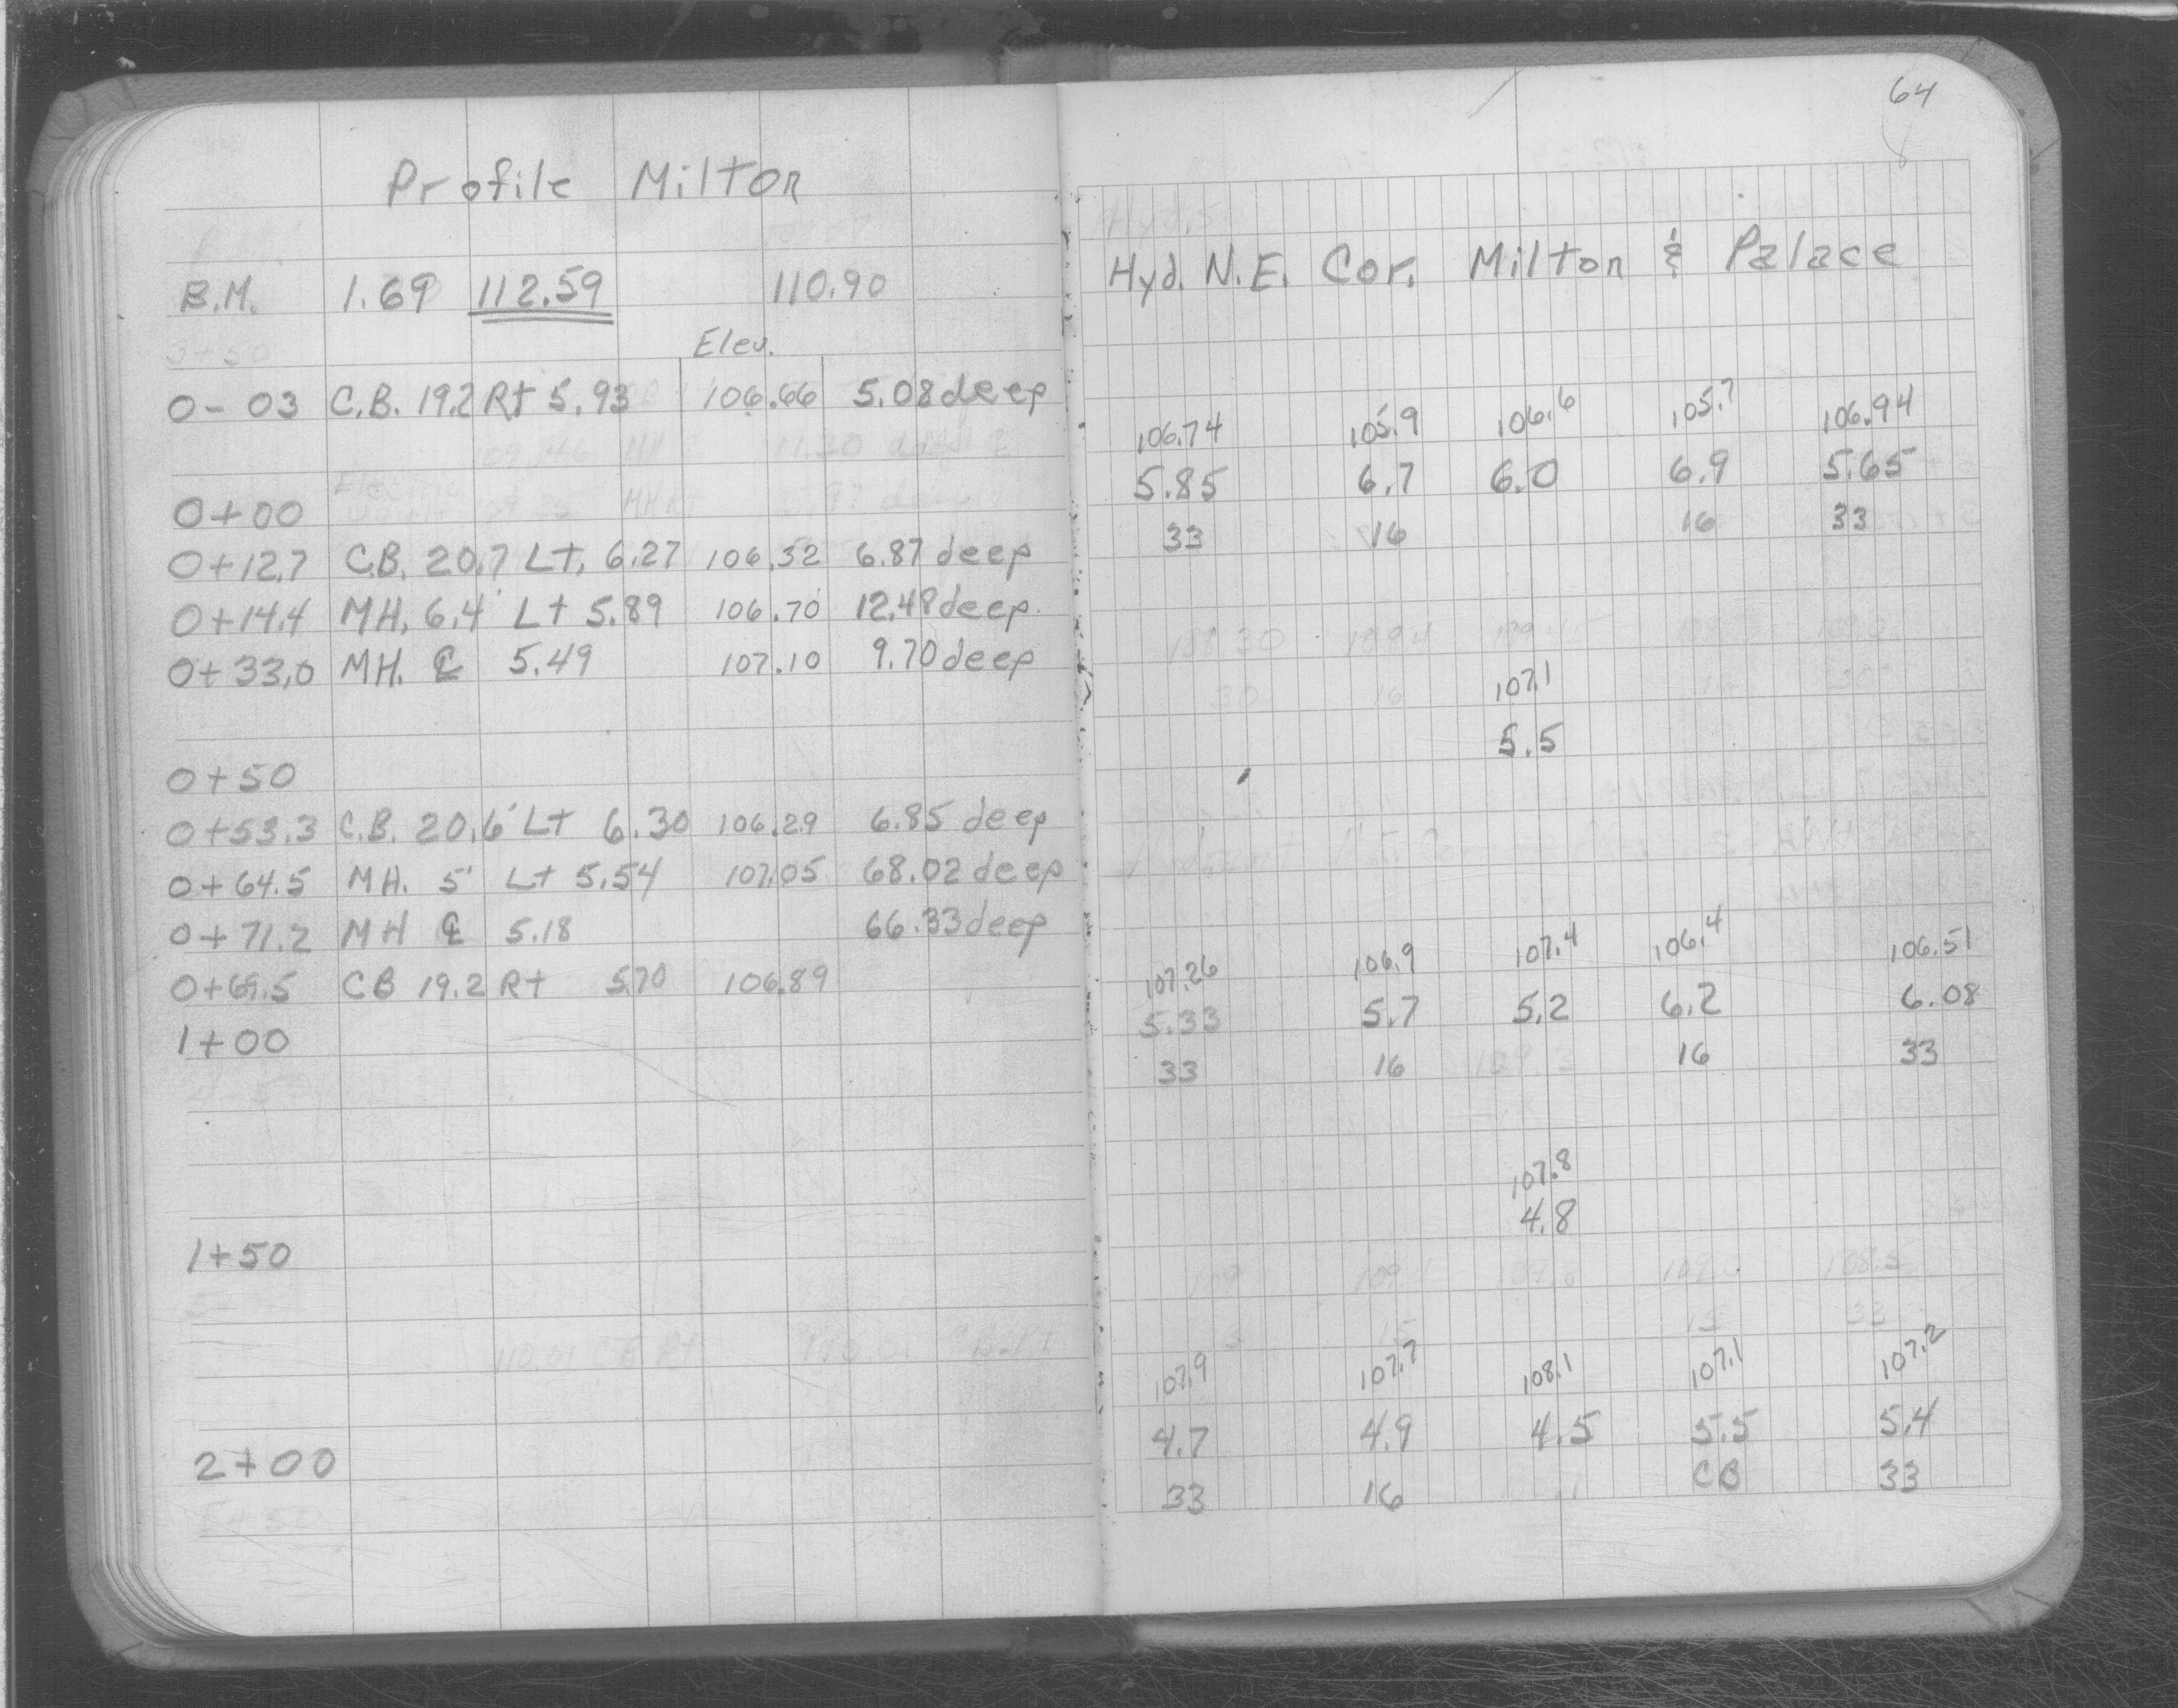 Profile Milton
B.M. 1.69 112.59 110.90
Elev.
0-03 C.B. 19.2 Rt 5.93 106.66 5.08 deep
0+00
0+12.7 C.B. 20.7 Lt. 6.27 106.32 6.87 deep
0+14.4 MH. 6.4' Lt 5.89 106.70 12.48 deep.
0+33.0 MH. ℄ 5.49 107.10 9.70 deep
0+50
0+53.3 C.B. 20.6' Lt 6.30 106.29 6.85 deep
0+64.5 MH. 5' Lt 5.54 107.05 68.02 deep
0+71.2 MH ℄ 5.18 66.33 deep
0+69.5 CB 19.2 Rt 5.70 106.89
1+00
1+50
2+00
64
Hyd. N.E. Cor. Milton & Palace
106.74 105.9 106.6 105.7 106.94
5.85 6.7 6.0 6.9 5.65
33 16 16 33
107.1
5.5
107.26 106.9 107.4 106.4 106.51
5.33 5.7 5.2 6.2 6.08
33 16 16 33
107.8
4.8
107.9 107.7 108.1 107.1 107.2
4.7 4.9 4.5 5.5 5.4
33 16 CB 33